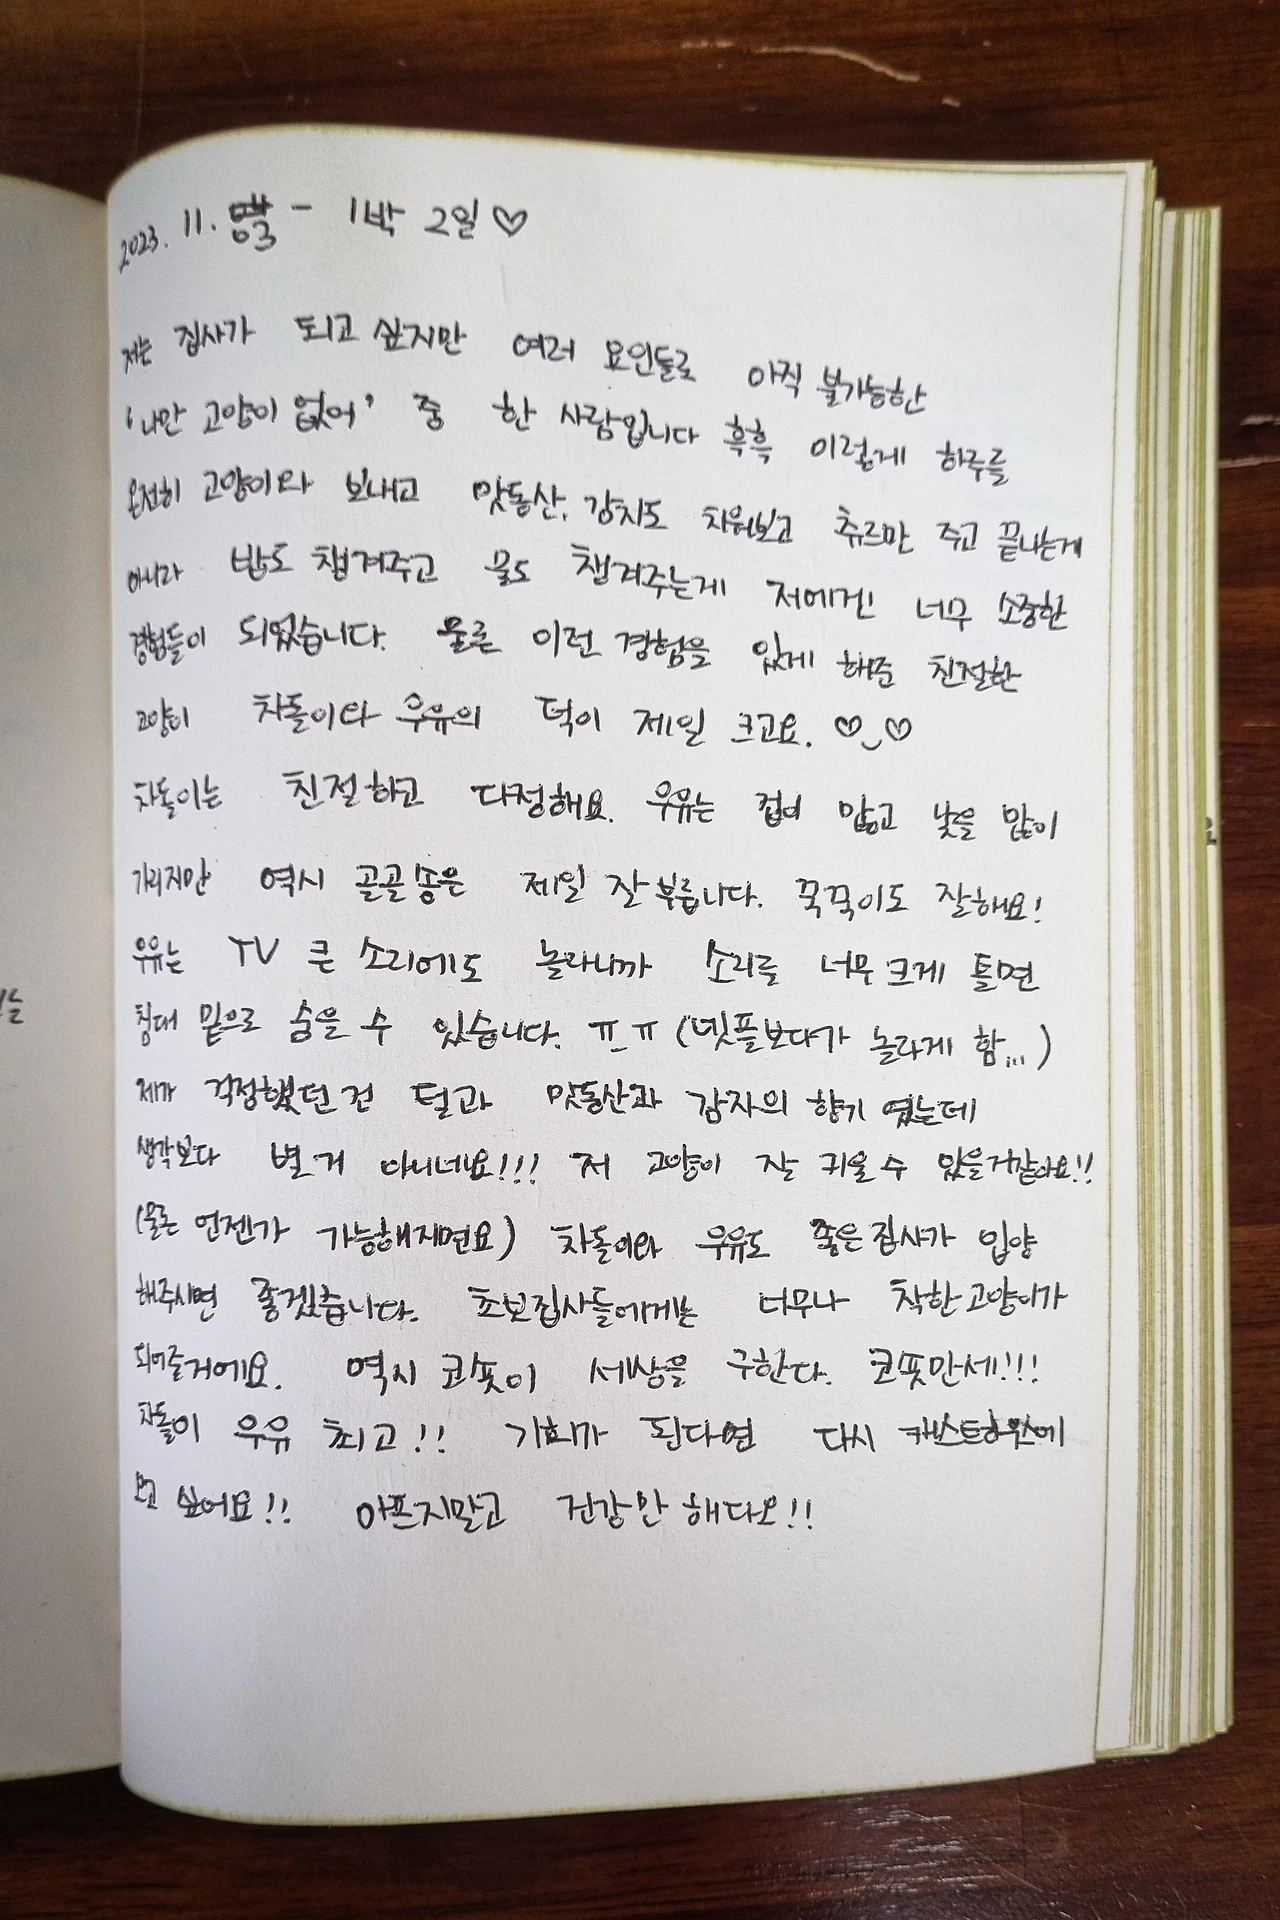 2023. 11. 03 - 1박 2일 ♡
저는 집사가 되고 싶지만 여러 요인들로 아직 불가능한
'나만 고양이 없어' 중 한 사람입니다 흑흑 이렇게 하루를
온전히 고양이와 보내고 맛동산, 감자도 치워보고 츄르만 주고 끝나는게
아니라 밥도 챙겨주고 물도 챙겨주는게 저에겐 너무 소중한
경험들이 되었습니다. 물론 이런 경험을 있게 해준 친절한
고양이 차돌이와 우유의 덕이 제일 크고요. ♡‿♡
차돌이는 친절하고 다정해요. 우유는 겁이 많고 낯을 많이
가리지만 역시 골골송은 제일 잘 부릅니다. 꾹꾹이도 잘해요!
우유는 TV 큰 소리에도 놀라니까 소리를 너무 크게 틀면
침대 밑으로 숨을 수 있습니다. ㅠ_ㅠ (넷플보다가 놀라게 함...)
제가 걱정했던 건 털과 맛동산과 감자의 향기 였는데
생각보다 별 거 아니네요!!! 저 고양이 잘 키울 수 있을거같아요!!
(물론 언젠가 가능해지면요) 차돌이와 우유도 좋은 집사가 입양
해주시면 좋겠습니다. 초보집사들에게는 너무나 착한 고양이가
되어줄거에요. 역시 코숏이 세상을 구한다. 코숏만세!!!
차돌이 우유 최고!! 기회가 된다면 다시 캐스트하우스에
오고 싶어요!! 아프지말고 건강만 해다오!!